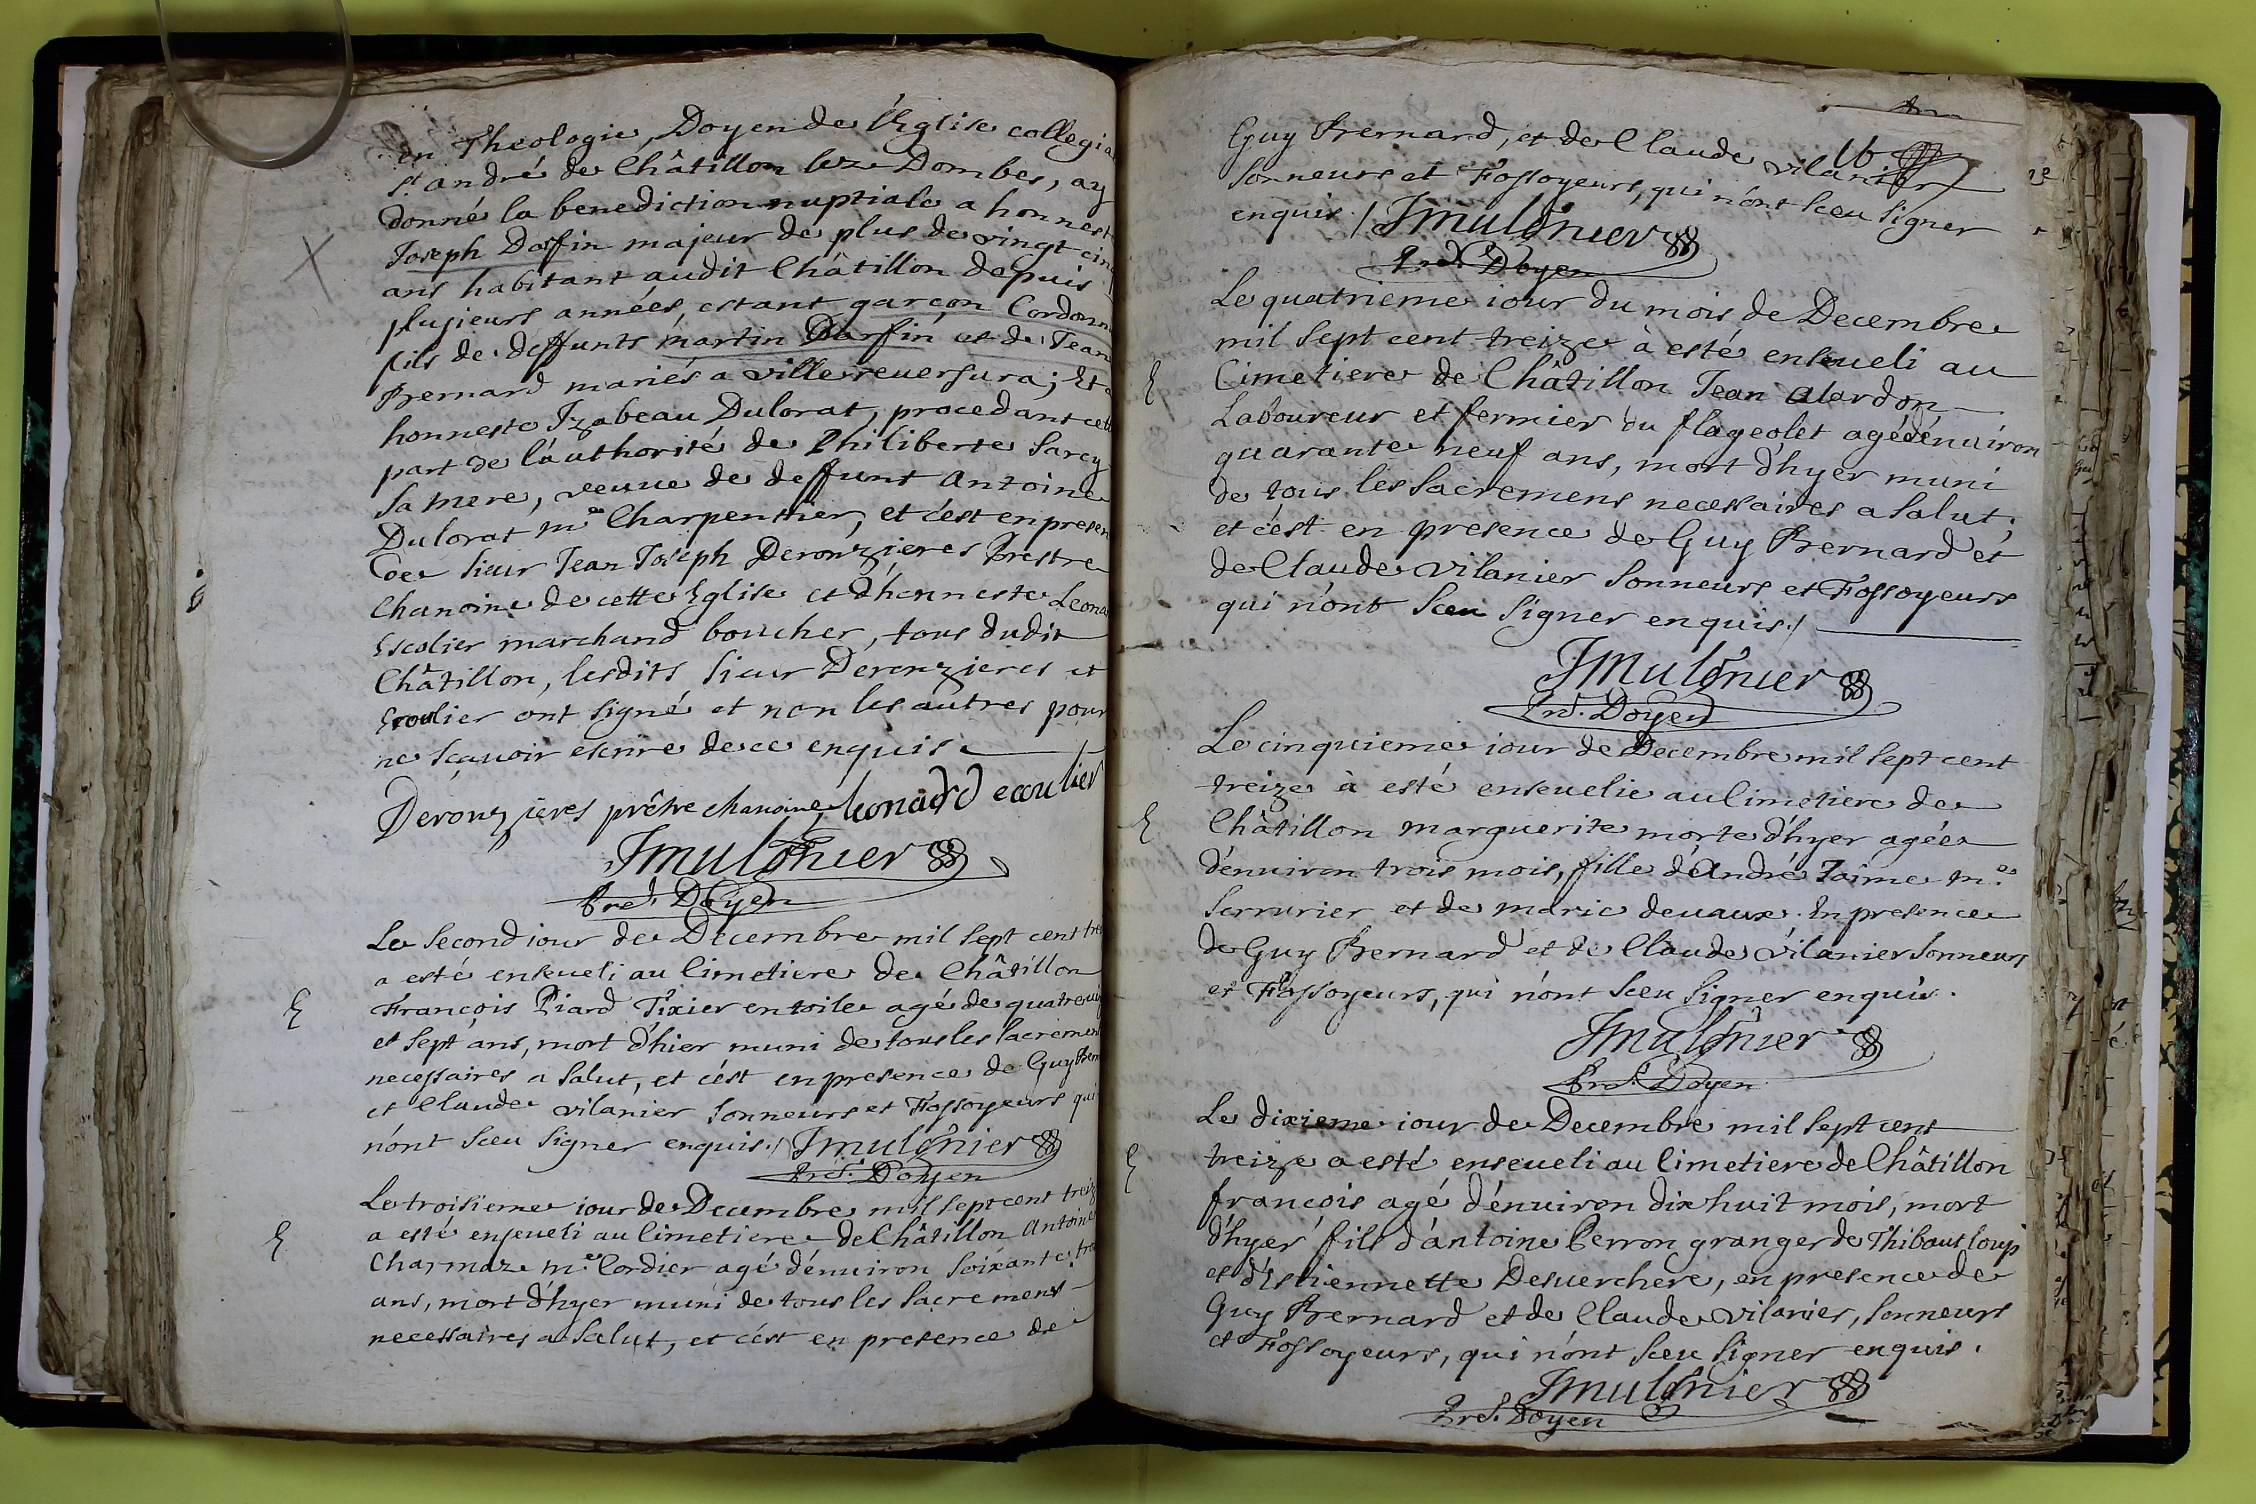 en Theologie, Doyen de l'Eglise collegia
St andré de Châtillon lez Dombes, ay
donné la benediction nuptiale a honnest
Joseph Darfin majeur de plus de vingt cin
ans habitant audit Châtillon depuis
plusieurs années, estant garçon Cordonn
fils de deffunts martin Darfin et de Jean
Bernard mariés a villereversura; Et a
honneste Izabeau Dulorat, procedant cett
part de l'authorité de Philiberte Sarcy
sa mere, veuve de deffunt antoine
Dulorat me Charpentier, et c'est en presen
de sieur Jean Joseph Deronzieres Prestre
Chanoine de cette Eglise et d'honneste Leona
Escolier marchand boucher, tous dudit
Châtillon, lesdits sieur Deronzieres et
Escolier ont signé et non les autres pour
ne sçavoir escrire de ce enquis
Deronzieres prêtre chanoine leonard ecoulier
JMulonier
Pred. Doyen
Le second iour de Decembre mil sept cent trei
a esté enseueli au Cimetiere de Châtillon
François Piard Tixier en toile agé de quatre vi
et sept ans, mort d'hier muni de tous les sacremen
necessaires a salut, et c'est en presence de Guy Bern
et Claude vilanier sonneurs et Fossoyeurs qui
n'ont sceu signer enquis./ JMulonier
Pred. Doyen
Le troisieme iour de Decembre mil sept cent treiz
a esté enseueli au Cimetiere de Châtillon Antoine
Charmaz me Cordier agé d'enuiron soixante tre
ans, mort d'hyer muni de tous les sacremens
necessaires a salut, et c'est en presence de
16
Guy Bernard, et de Claude vilanier
sonneurs et Fossoyeurs, qui n'ont sceu signer
enquis./ JMulonier
Pred. Doyen
Le quatrieme iour du mois de Decembre
mil sept cent treize à esté enseueli au
Cimetiere de Châtillon Jean alardon
Laboureur et fermier du flageolet agé d'enuiron
quarante neuf ans, mort d'hyer muni
de tous les sacremens necessaires a salut;
et c'est en presence de Guy Bernard et
de Claude vilanier sonneurs et Fossoyeurs
qui n'ont sceu signer enquis./
JMulonier
Pred. Doyen
Le cinquieme iour de Decembre mil sept cent
treize à esté enseuelie au Cimetiere de
Châtillon marguerite morte d'hyer agée
d'enuiron trois mois, fille d'André Jaime me
serrurier et de marie deuaux. En presence
de Guy Bernard et de Claude vilanier sonneurs
et Fossoyeurs, qui n'ont sceu signer enquis.
JMulonier
Pred. Doyen
Le dixieme iour de Decembre mil sept cent
treize a esté enseueli au Cimetiere de Châtillon
françois agé d'enuiron dix huit mois, mort
d'hyer fils d'antoine Perron granger de Thibaut loup
et d'Estiennette Desuerchere, en presence de
Guy Bernard et de Claude vilanier, sonneurs
et Fossoyeurs, qui n'ont sceu signer enquis.
JMulonier
Pred. Doyen